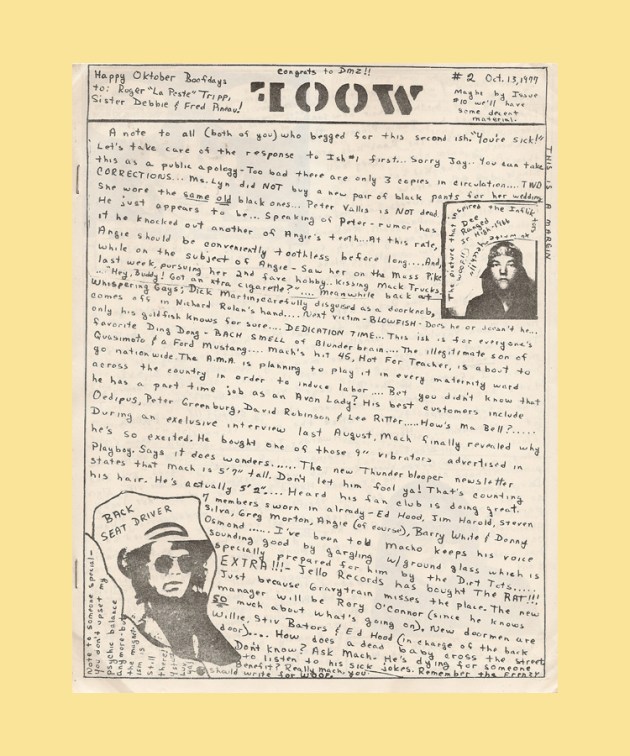 Happy Oktober Boofdays
to: Roger "La Peste" Tripp,
Sister Debbie & Fred Pineau!
Congrats to DMZ!!
WOOF
#2 Oct. 13, 1977
Maybe by Issue
#10 we'll have
some decent
material.
THIS IS A MARGIN
A note to all (both of you) who begged for this second ish. "You're sick!"
Let's take care of the response to Ish #1 first... Sorry Jay.. You can take
this as a public apology - Too bad there are only 3 copies in circulation.... TWO
CORRECTIONS... Ms. Lyn did NOT buy a new pair of black pants for her wedding.
She wore the same old black ones... Peter Vallis is NOT dead.
He just appears to be... Speaking of Peter - rumor has
it he knocked out another of Angie's teeth... At this rate,
Angie should be conveniently toothless before long.... And,
while on the subject of Angie - Saw her on the Mass Pike
last week, pursuing her 2nd fave hobby.. Kissing Mack Trucks.
..."Hey, Buddy! Got an xtra cigarette?".... Meanwhile back at
Whispering Gays; Dick Martin, carefully disguised as a doorknob,
comes off in Richard Nolan's hand.... Next victim - BLOWFISH - Does he or doesn't he...
only his goldfish knows for sure.... DEDICATION TIME... This ish is for everyone's
favorite Ding Dong - BACH SMELL of Blunder brain.... The illegitimate son of
Quasimoto & a Ford Mustang.... Mach's hit 45, Hot For Teacher, is about to
go nationwide. The A.M.A. is planning to play it in every maternity ward
across the country in order to induce labor .... But you didn't know that
he has a part time job as an Avon Lady? His best customers include
Oedipus, Peter Greenburg, David Robinson & Lee Ritter..... How's Ma Bell?.....
During an exclusive interview last August, Mach finally revealed why
he's so excited. He bought one of those 9" vibrators advertised in
Playboy. Says it does wonders....... The new Thunderblooper newsletter
states that Mach is 5'9" tall. Don't let him fool ya! That's counting
his hair. He's actually 5'2".... Heard his fan club is doing great.
7 members sworn in already - Ed Hood, Jim Harold, Steven
Silva, Greg Morton, Angie (of course), Barry White & Donny
Osmond ...... I've been told Macho keeps his voice
sounding good by gargling w/ground glass which is
specially prepared for him by the Dirt Tots.....
EXTRA!!! - Jello Records has bought The RAT!!!
Just because Gravytrain misses the place. The new
manager will be Rory O'Connor (since he knows
so much about what's going on). New doormen are
Willie, Stiv Bators & Ed Hood (in charge of the back
door).... How does a dead baby cross the street
Don't know? Ask Mach. He's dying for someone
to listen to his sick jokes. Remember the Frenzy
benefit? Really mach, you
should write for WOOF.
The picture that inspired the Inflik
Dee
Ranged
Jr. High-1966
BACK
SEAT DRIVER
Note to someone special -
You don't upset my
psychic balance
anymore - but
the magnet-
ism is
still
there!